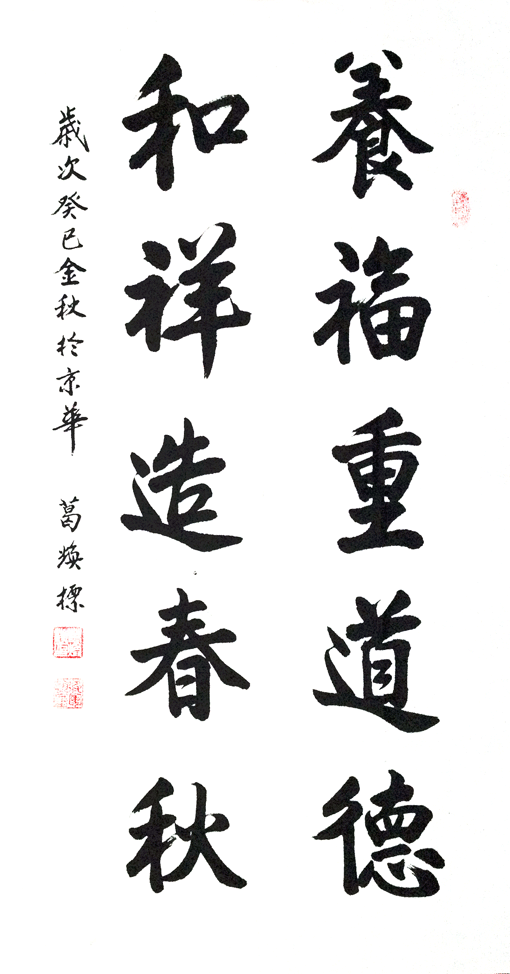 養福重道德
和祥造春秋
歲次癸巳金秋於京華 葛煥標